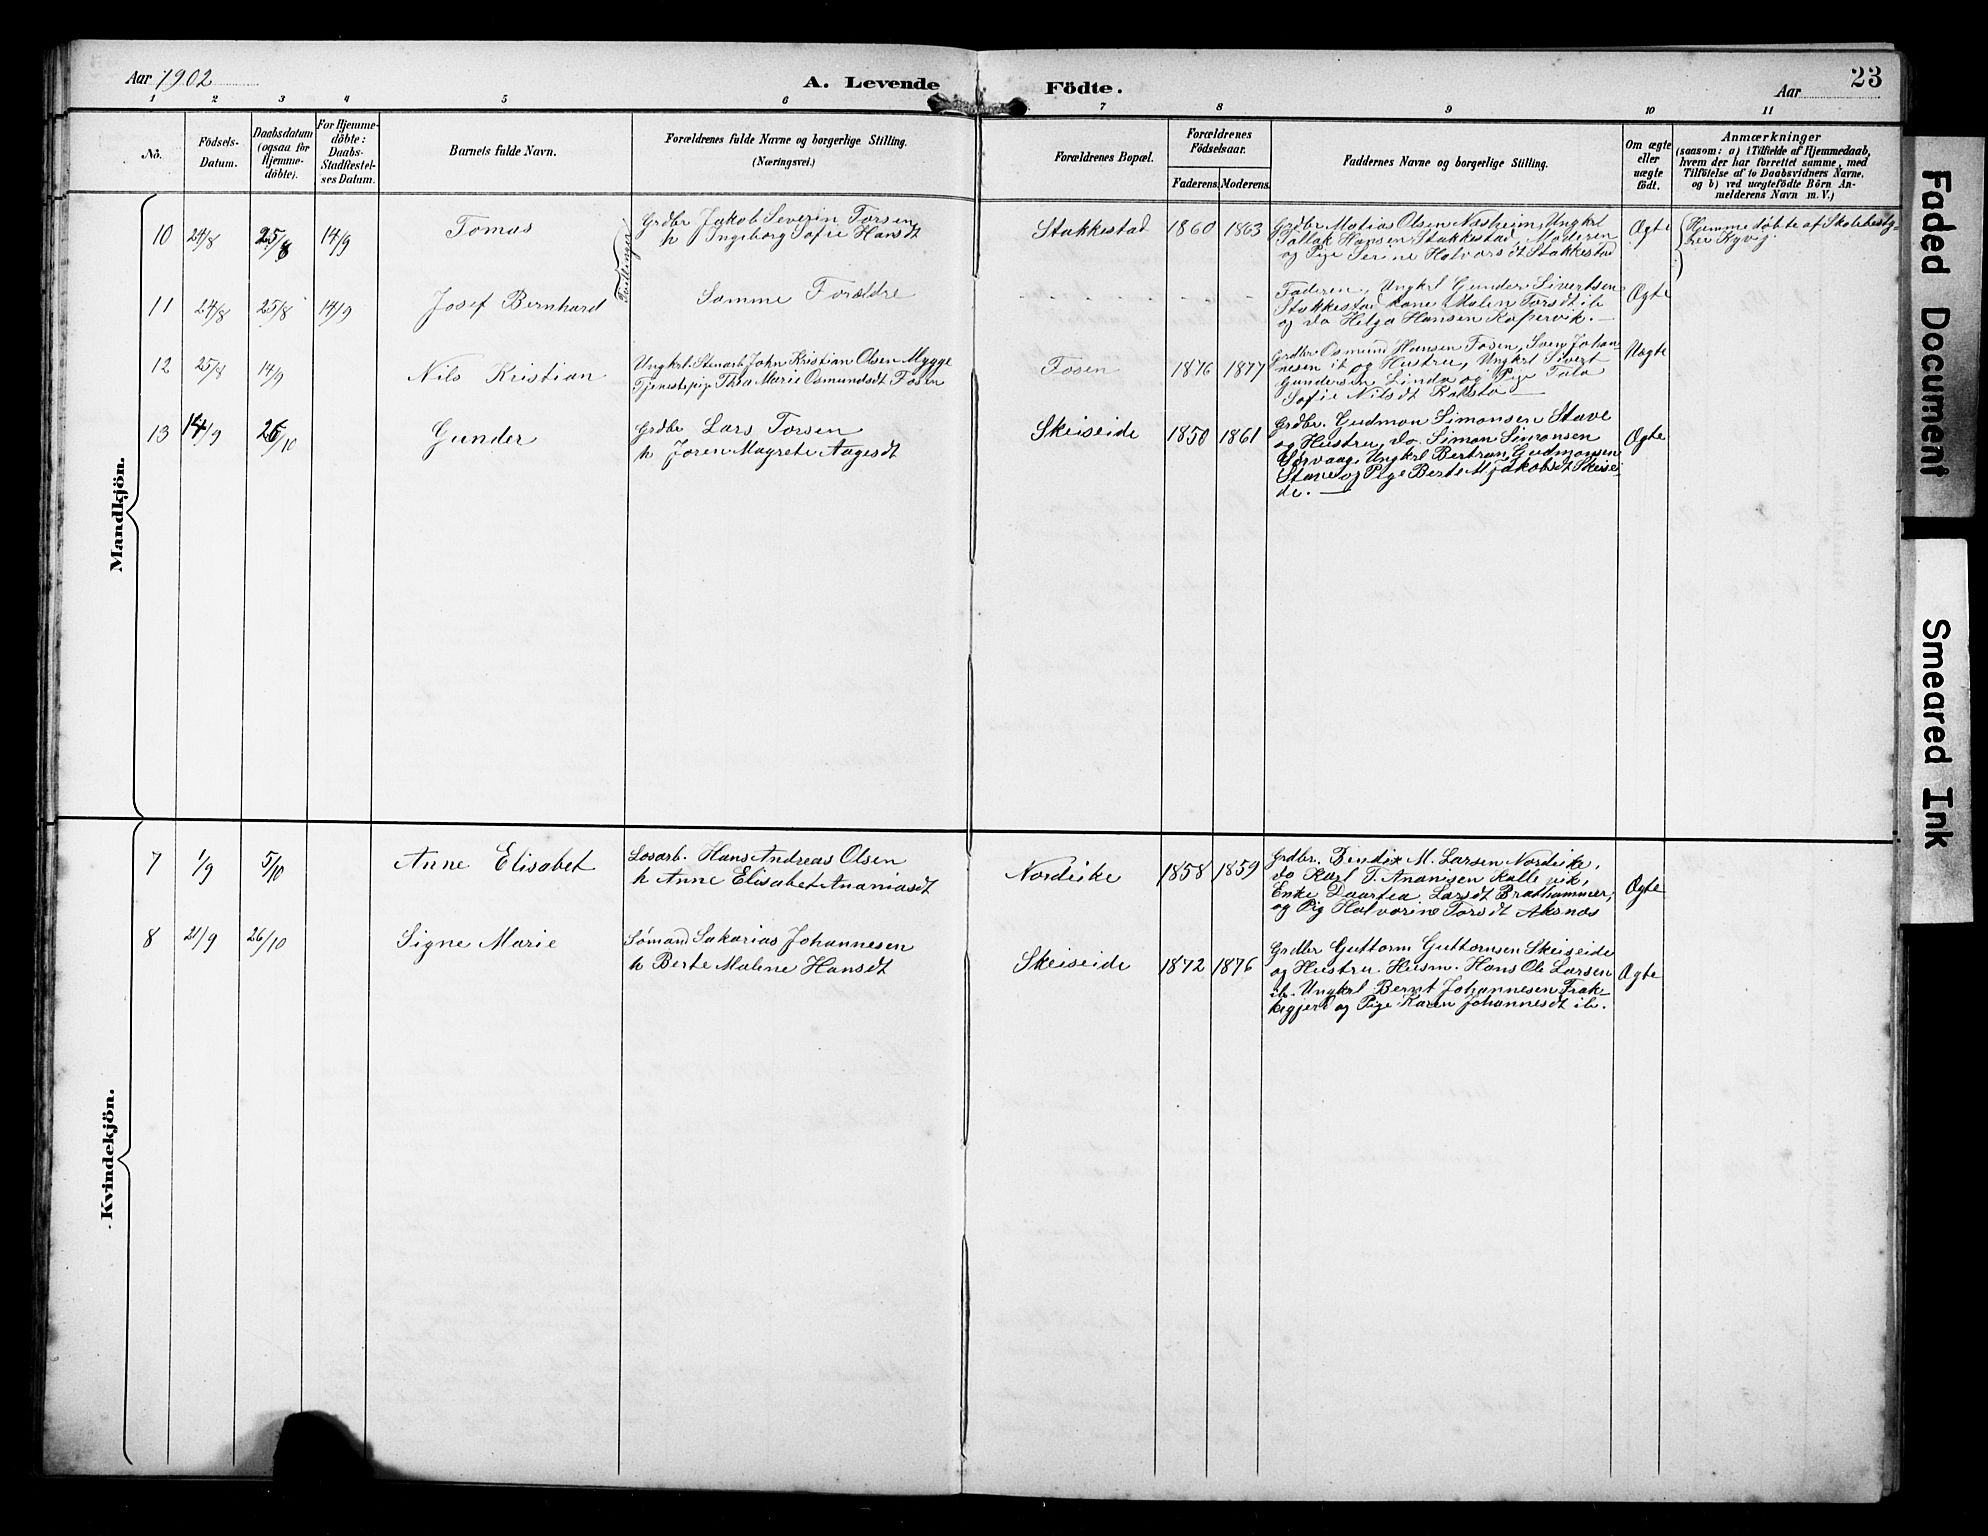 Aar 1902
A. Levende Födte.
Aar
23
1 2 3 4 5 6 7 8 9 10 11
No.
Födsels-Datum.
Daabsdatum (ogsaa for Hjemme-döbte).
For Hjemme-döbte: Daabs-Stadfæstel-ses Datum.
Barnets fulde Navn.
Forældrenes fulde Navne og borgerlige Stilling. (Næringsvei.)
Forældrenes Bopæl.
Forældrenes Födselsaar.
Faderens. Moderens.
Faddernes Navne og borgerlige Stilling.
Om ægte eller uægte födt.
Anmærkninger
(saasom: a) i Tilfælde af Hjemmedaab, hvem der har forrettet samme, med Tilföielse af to Daabsvidners Navne, og b) ved uægtefödte Börn An-melderens Navn m. V.)
Mandkjön.
10 24/8 25/8 14/9 Tomas
Tvillinger
Grdbr Jakob Severin Torsen
h Ingeborg Sofie Hansdt
Stakkestad 1860 1863
Grdbr Matias Olsen Næsheim, Ungkrl
Tallak Hansen Stakkestad, Moderen
og Pige Serine Halvorsdt Stakkestad
Ægte
Hjemmedøbte af Skolebesty-
rer Kyvig
11 24/8 25/8 14/9 Josef Bernhard
Samme Forældre
Faderen, Ungkrl Gunder Sivertsen
Stakkestad Kone Malen Torsdt ib
og do Helga Hansen Kopervik.
Ægte
12 25/8 14/9 Nils Kristian
Ungkrl. Stenarb John Kristian Olsen Mygge
Tjenestepige Thea Marie Osmundsdt Fosen
Fosen 1876 1877
Grdbr Osmund Hansen Fosen, Sven Johan-
nesen ib og Hustru, Ungkrl Sivert
Gundersen Linda og Pige Tala
Sofie Nilsdt
Uægte
13 14/9 26/10 Gunder
Grdbr Lars Torsen
h Joren Magrete Aagesdt
Skeiseide 1850 1861
Grdbr. Gudmon Simonsen Stave
og Hustru, do. Simon Simonsen
Sørvaag, Ungkrl Bertran Gudmonsen
Stave og Pige Berte M Jakobsdt Skeisei-
de.
Ægte
Kvindekjön.
7 1/9 5/10 Anne Elisabet
Løsarb. Hans Andreas Olsen
h Anne Elisabet Ananiasdt
Nordeike 1858 1859
Grdbr. Bendix M. Larsen Nordeike,
do Karl T. Ananisen Kallevik,
Enke Daartea Larsdt Brathammer,
og Pig Halvorine Torsdt Aksnæs
Ægte
8 21/9 26/10 Signe Marie
Sømand Sakarias Johannesen
h Berte Malene Hansdt
Skeiseide 1872 1876
Grdbr Guttorm Guttormsen Skeiseide
og Hustru. Husm. Hans Ole Larsen
ib. Ungkrl Bernt Johannesen Frak-
kegjerd og Pige Karen Johannesdt ib.
Ægte
Faded Document
Smeared Ink